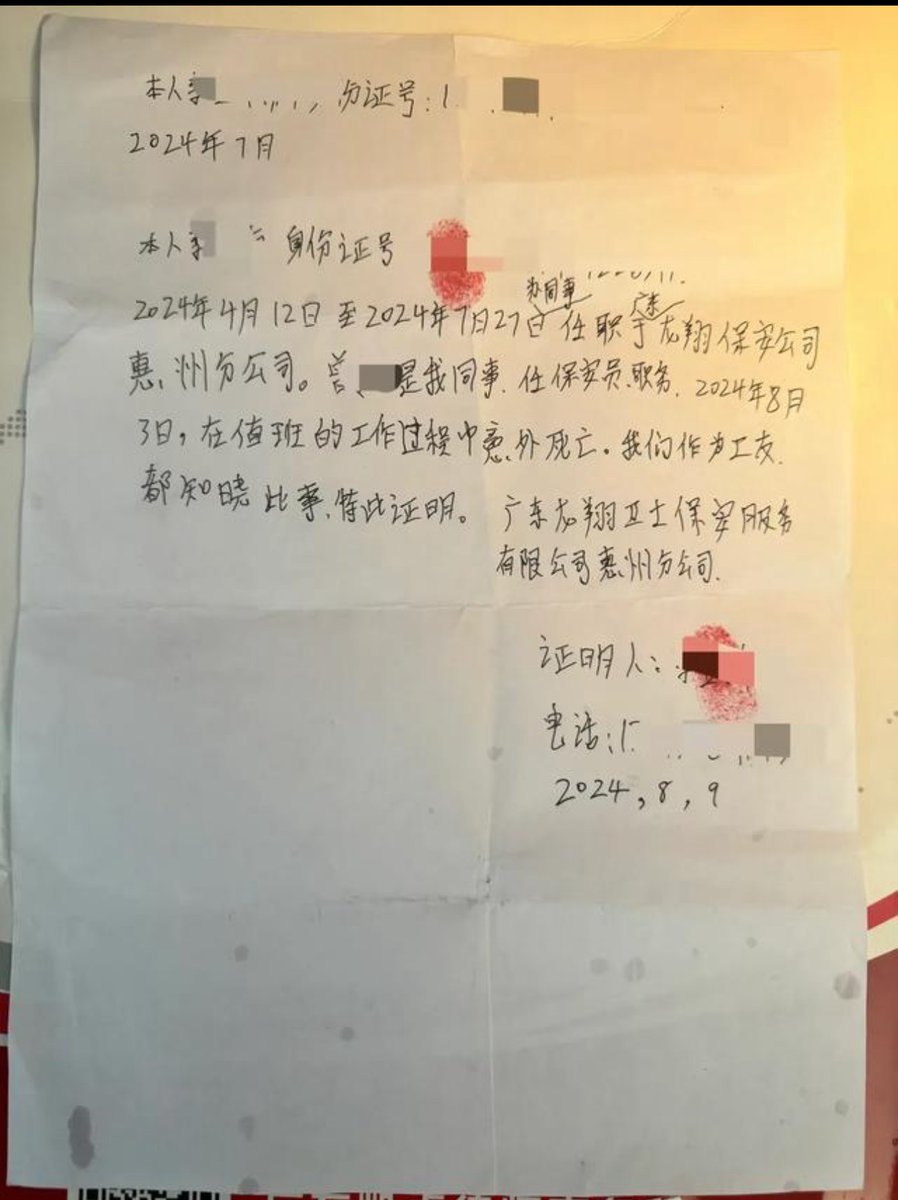 本人
份证号:1
2024年7月
本人
身份证号
办同事
广东
2024年4月12日至2024年7月27日任职于龙翔保安公司
惠州分公司。曾
是我同事.任保安员职务.2024年8月
3日,在值班的工作过程中意外死亡。我们作为工友.
都知晓此事.特此证明。
广东龙翔卫士保安服务
有限公司惠州分公司.
证明人:
电话:1
2024,8,9